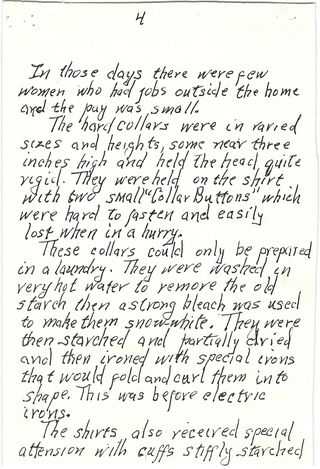 4
In those days there were few
women who had jobs outside the home
and the pay was small.
The hard collars were in varied
sizes and heights, some near three
inches high and held the head quite
rigid. They were held on the shirt
with two small "Collar Buttons" which
were hard to fasten and easily
lost when in a hurry.
These collars could only be prepared
in a laundry. They were washed in
very hot water to remove the old
starch then a strong bleach was used
to make them snow-white. They were
then starched and partially dried
and then ironed with special irons
that would fold and curl them into
shape. This was before electric
irons.
The shirts also received special
attension with cuffs stiffly starched